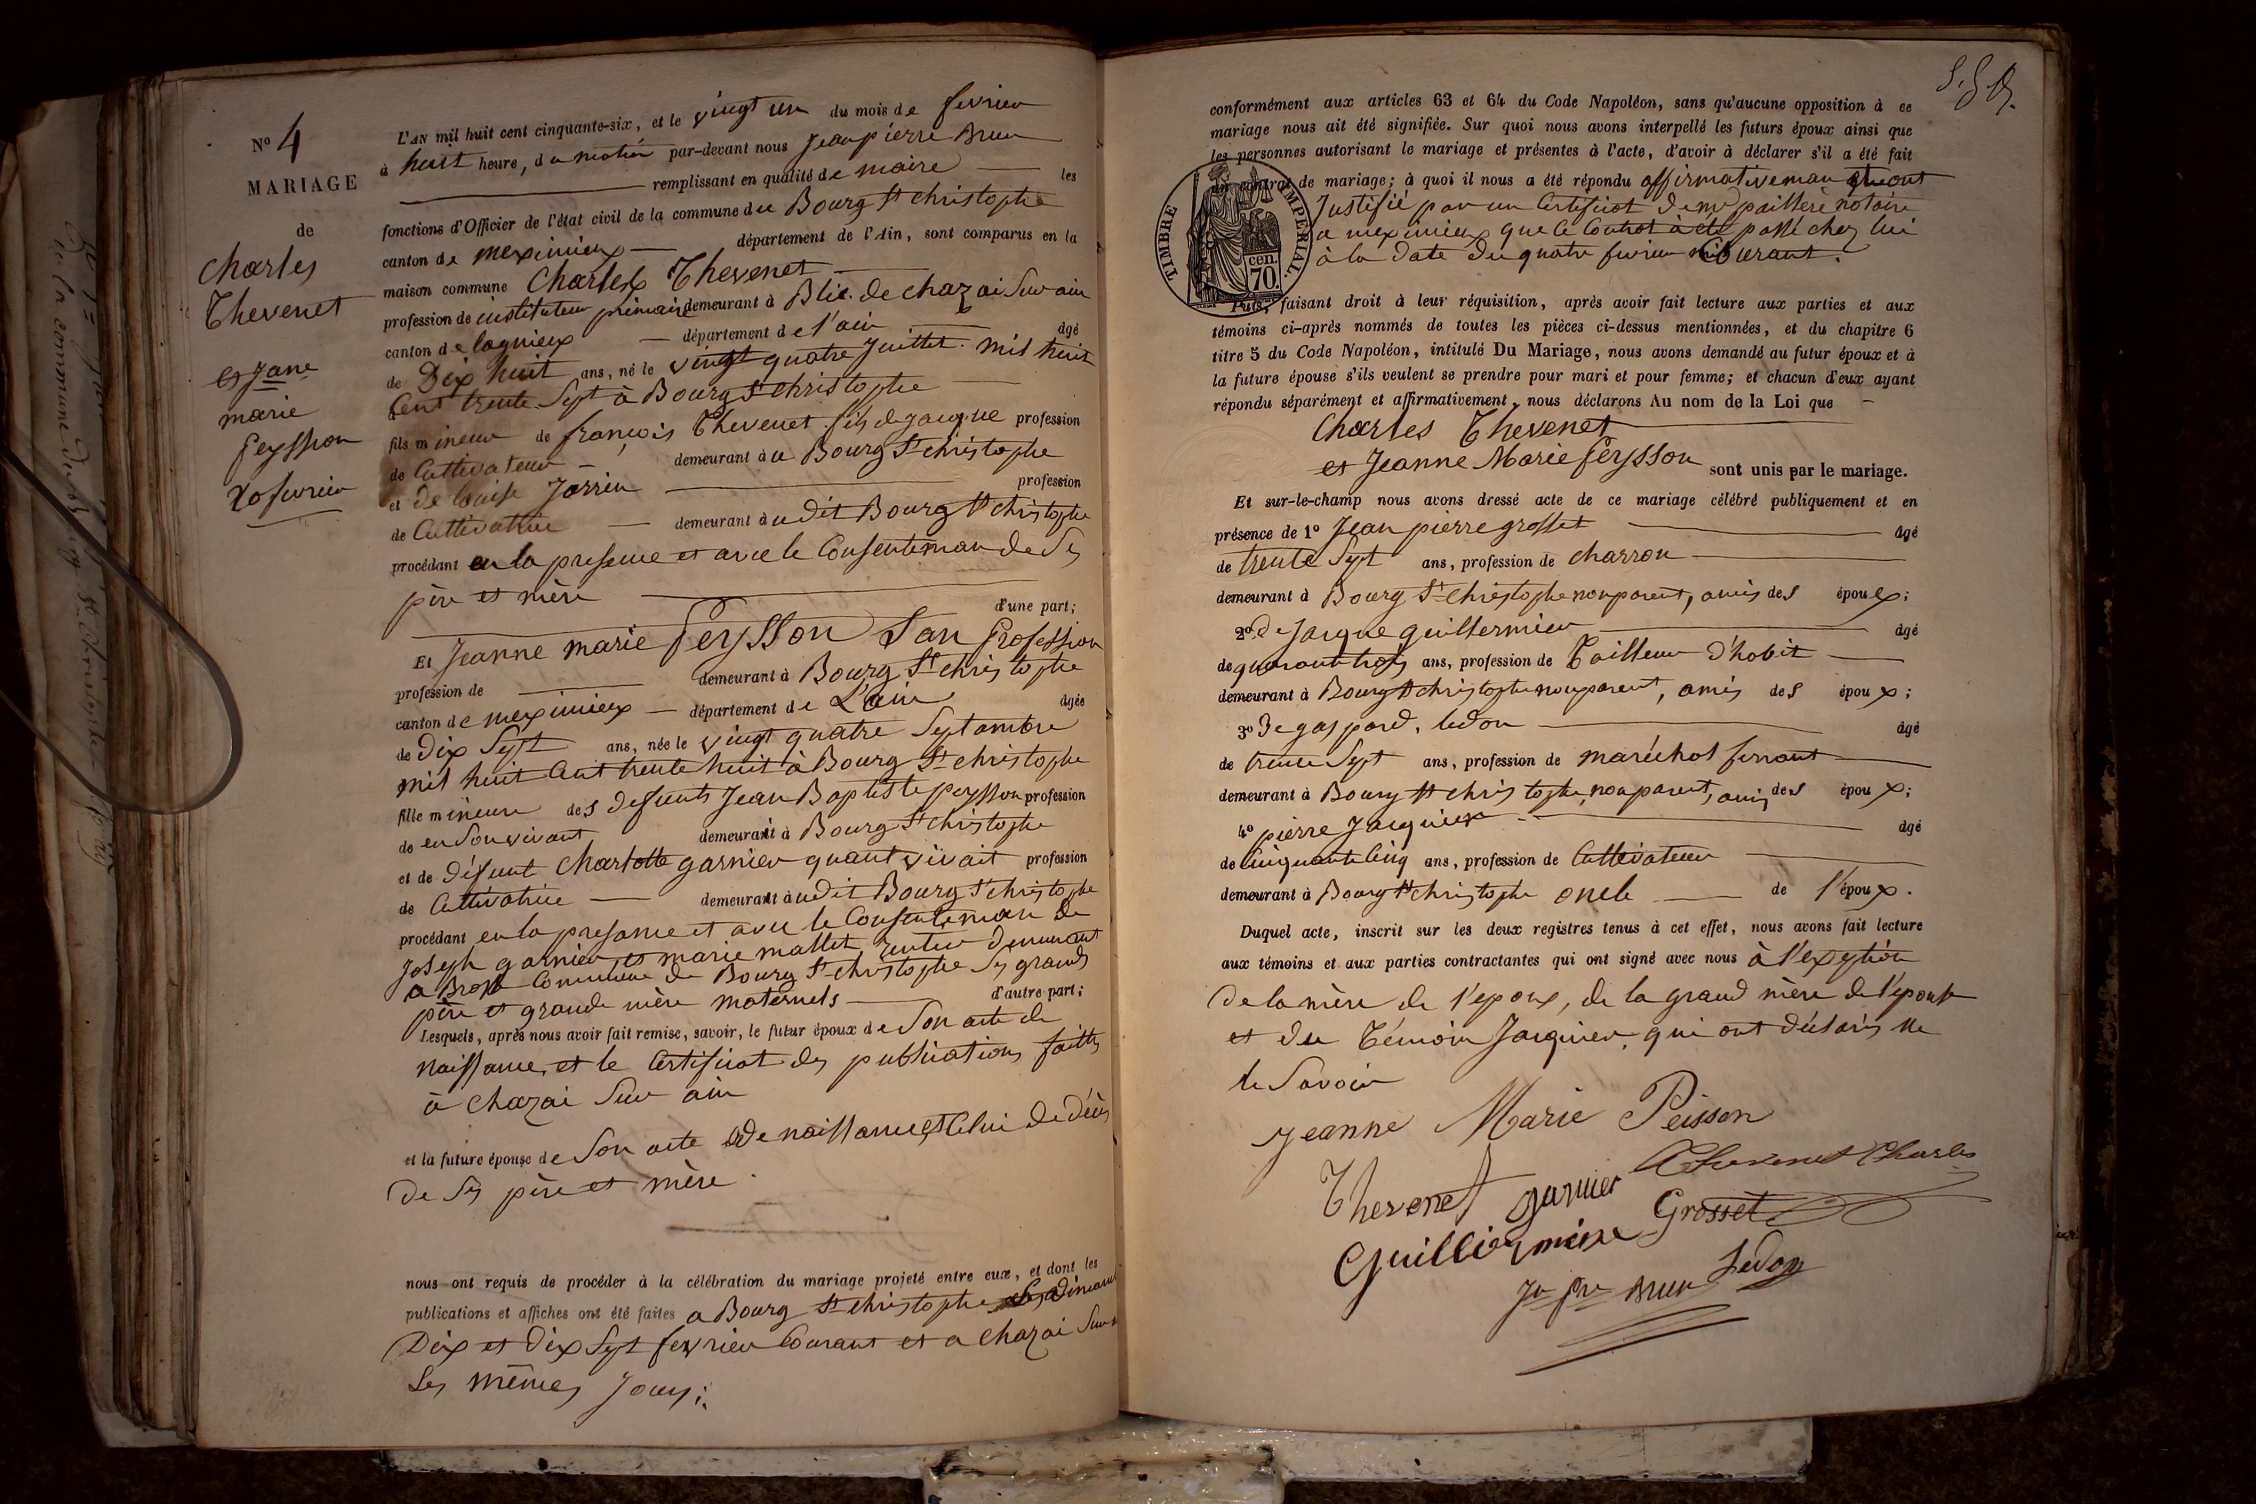 N° 4
MARIAGE
de
Charles
Thevenet
et Jane
marie
feysson
20 fevrier
L'AN mil huit cent cinquante-six, et le vingt un du mois de fevrier
à huit heure, du matin par-devant nous Jean pierre Brun
remplissant en qualité de maire les
fonctions d'Officier de l'état civil de la commune du Bourg St christophe
canton de meximieux département de l'Ain, sont comparus en la
maison commune Charles Thevenet
profession de instituteur primaire demeurant à de chazai Sur ain
canton de lagnieux département de l'ain âgé
de Dix huit ans, né le vingt quatre Juillet mil huit
Cent trente Sept à Bourg St christophe
fils mineur de françois Thevenet fils de Jacque profession
de Cultivateur demeurant à u Bourg St christophe
et de louise Jarrin profession
de Cultivatrice demeurant à u dit Bourg St christophe
procédant en la presence et avec le Consenteman de Ses
père et mère
d'une part;
Et Jeanne marie feysson San profession
profession de demeurant à Bourg St christophe
canton de meximieux département de L'ain âgée
de Dix Sept ans, née le vingt quatre Septambre
mil huit Cent trente huit à Bourg St christophe
fille mineure des defunts Jean Baptiste peysson profession
de en Son vivant demeurant à Bourg St christophe
et de défunt Charlotte garnier quant vivait profession
de Cultivatrice demeurant à u dit Bourg St christophe
procédant en la presance et avec le Consenteman de
Joseph garnier et marie mallet rentier demeurant
a Commune de Bourg St christophe Ses grands
père et grande mère maternels d'autre part;
Lesquels, après nous avoir fait remise, savoir, le futur époux de Son acte de
naissance, et le Certificat des publications faittes
à chazai Sur ain
et la future épouse de Son acte de naissance et Celui de décès
de Ses père et mère.
nous ont requis de procéder à la célébration du mariage projeté entre eux, et dont les
publications et affiches ont été faites a Bourg St christophe les dimanches
Dix et Dix Sept fevrier Courant et a chazai Sur
Les mêmes Jours;
conformément aux articles 63 et 64 du Code Napoléon, sans qu'aucune opposition à ce
mariage nous ait été signifiée. Sur quoi nous avons interpellé les futurs époux ainsi que
les personnes autorisant le mariage et présentes à l'acte, d'avoir à déclarer s'il a été fait
contrat de mariage; à quoi il nous a été répondu affirmativeman et ont
Justifié par un Certificat de me pailliere notaire
a meximieux que le Contrat à été passé chez lui
à la date du quatre fevrier Courant.
TIMBRE IMPERIAL.
70. cen.
Puis, faisant droit à leur réquisition, après avoir fait lecture aux parties et aux
témoins ci-après nommés de toutes les pièces ci-dessus mentionnées, et du chapitre 6
titre 5 du Code Napoléon, intitulé Du Mariage, nous avons demandé au futur époux et à
la future épouse s'ils veulent se prendre pour mari et pour femme; et chacun d'eux ayant
répondu séparément et affirmativement, nous déclarons Au nom de la Loi que
Charles Thevenet
et Jeanne Marie feysson sont unis par le mariage.
Et sur-le-champ nous avons dressé acte de ce mariage célébré publiquement et en
présence de 1° Jean pierre grosset âgé
de trente Sept ans, profession de charron
demeurant à Bourg St christophe non parent, amis des époux;
2° de Jacque guillermier âgé
de quarante trois ans, profession de Tailleur d'habit
demeurant à Bourg St christophe non parent, amis des époux;
3° de gaspard. ledon âgé
de trente Sept ans, profession de maréchal ferrant
demeurant à Bourg St christophe, non parent, amis des époux;
4° pierre Jacquier âgé
de Cinquante Cinq ans, profession de Cultivateur
demeurant à Bourg St christophe oncle de l'époux.
Duquel acte, inscrit sur les deux registres tenus à cet effet, nous avons fait lecture
aux témoins et aux parties contractantes qui ont signé avec nous à l'exeption
de la mère de l'epoux, de la grand mère de l'epouse
et du Témoin Jacquier, qui ont déclarés ne
le Savoir
Jeanne Marie Peisson
Thevenet Charles
Thevenet garnier
Grosset
Guilliermier
Ledon
Jn pre Brun